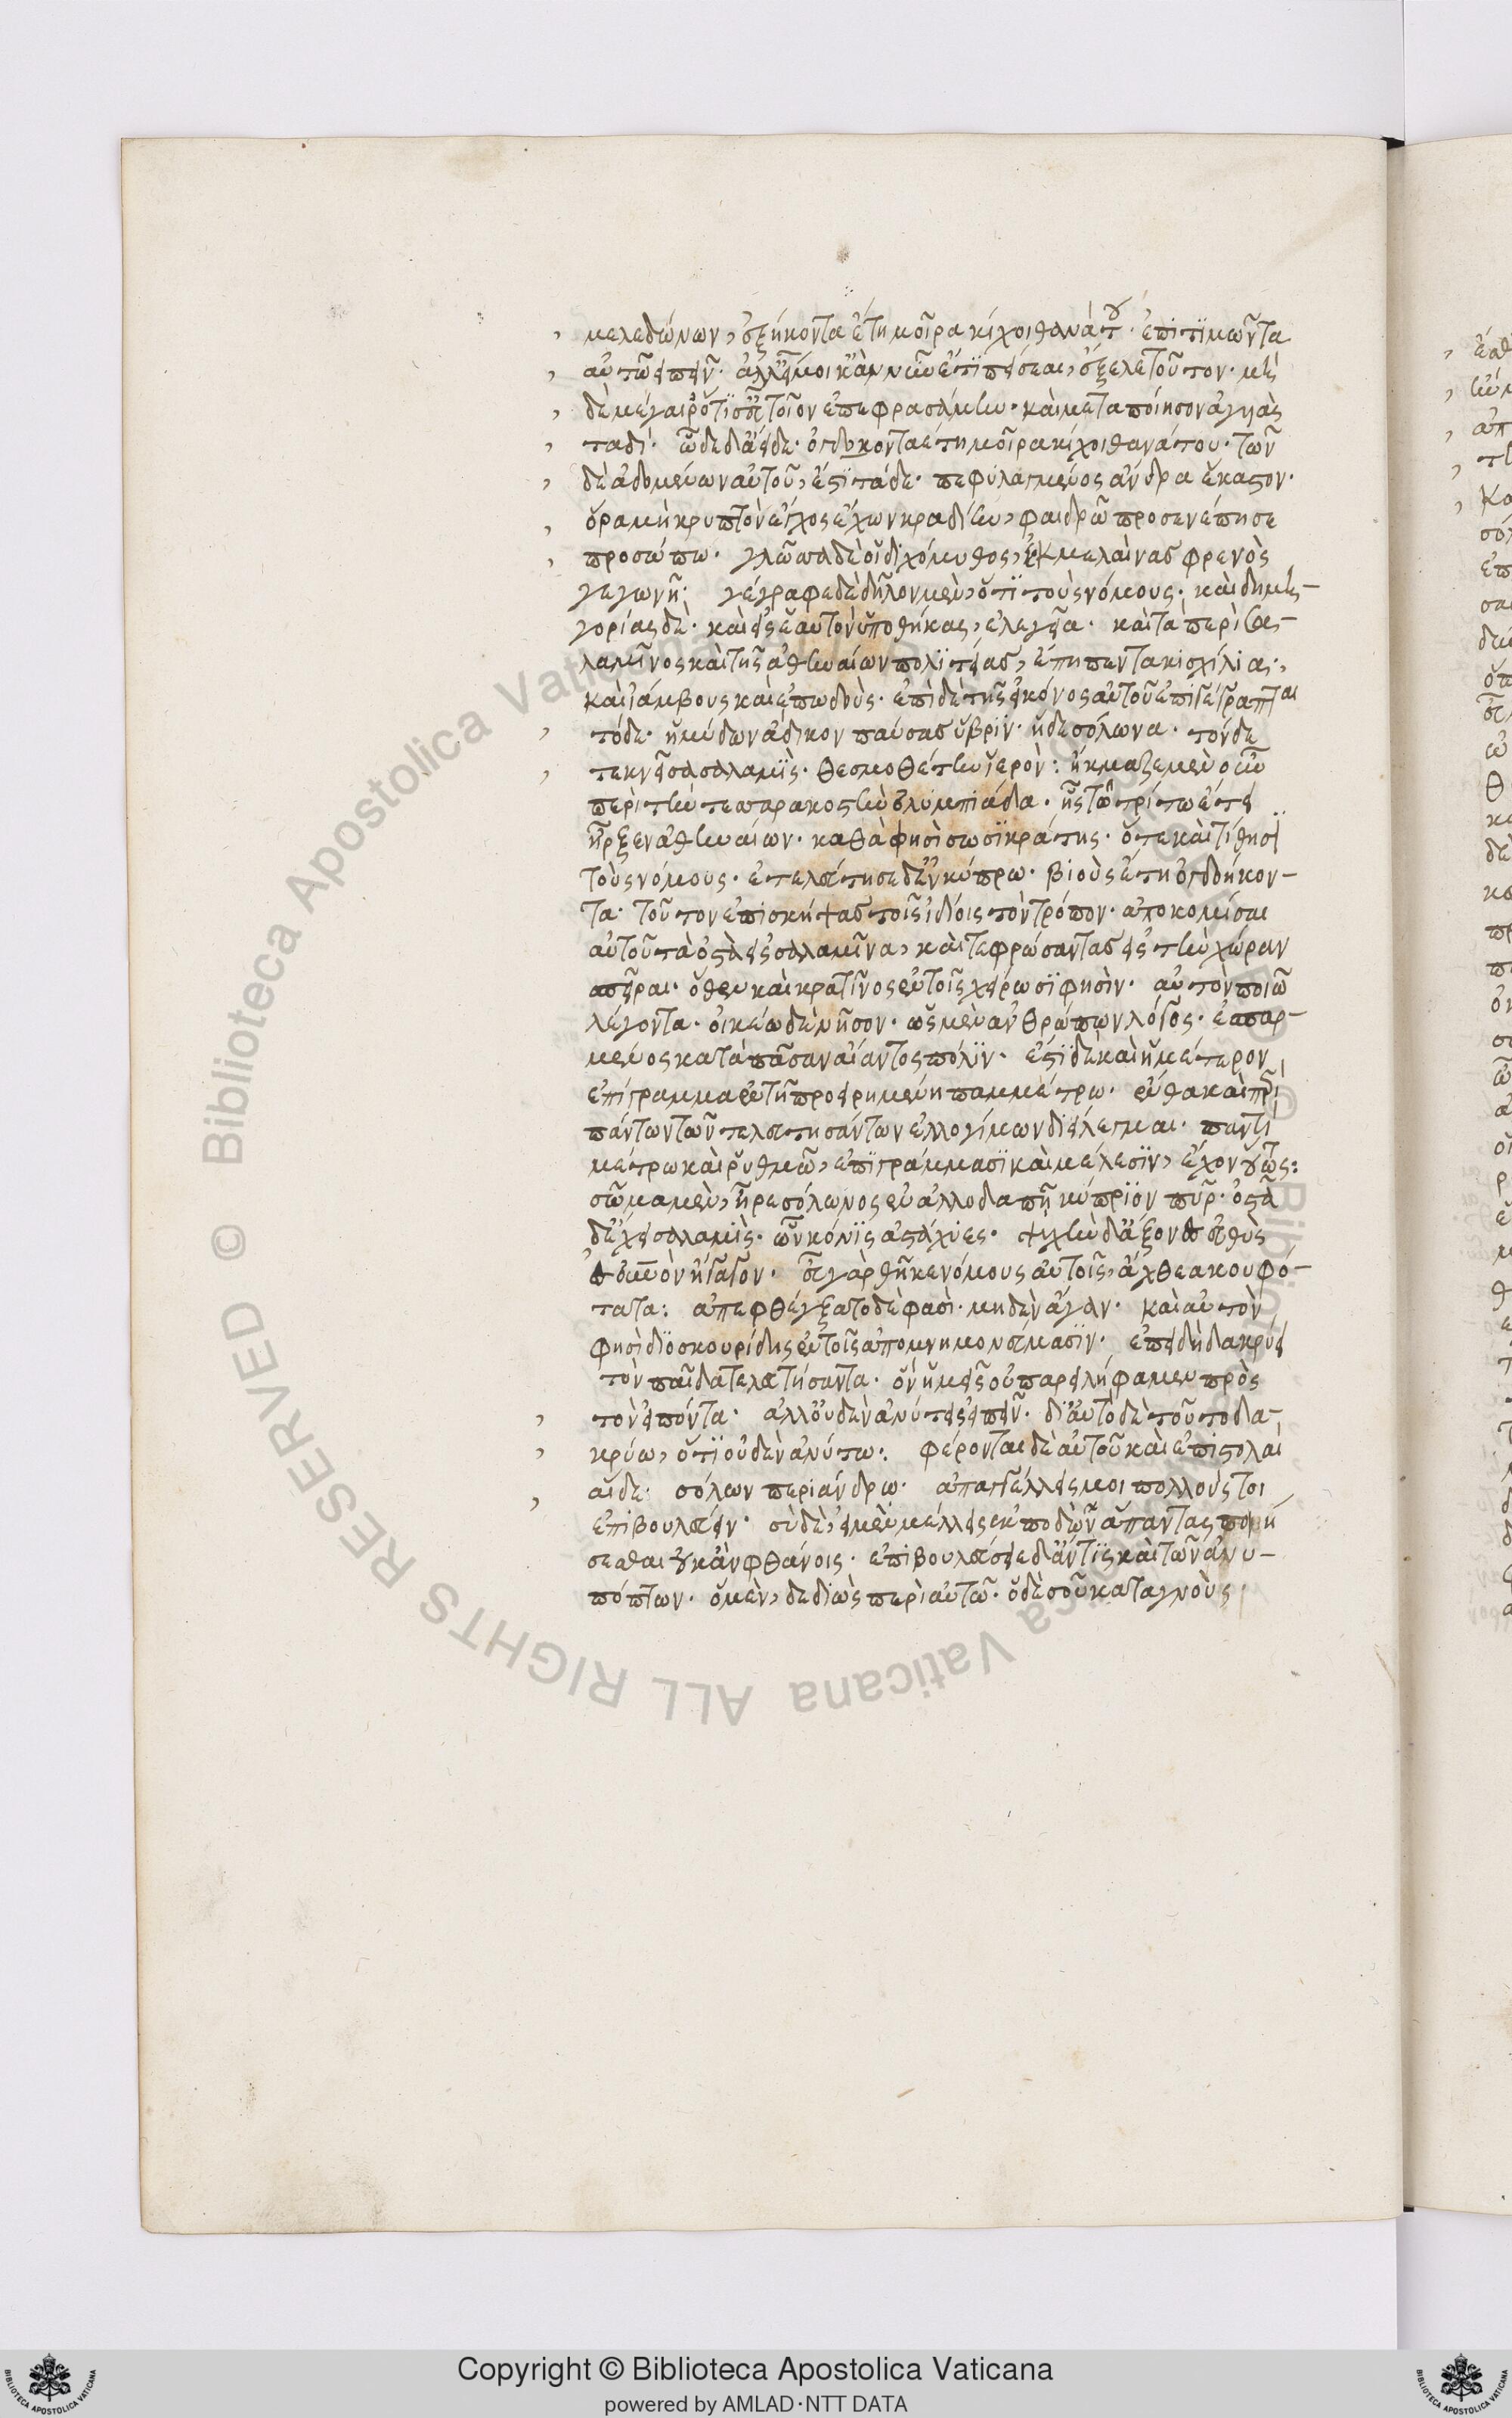 μελεδώνων, ἑξήκοντα ἔτη μοῖρα κίχοι θανάτου. ἐπιτιμῶντα
αὐτῶ εἰπεῖν. ἀλλ' εἴ μοι κἂν νῦν ἔτι πείσεαι, ἔξελε τοῦτον. μη
δὲ μέγαιρ' ὅτι σεῦ τοῖον ἐπεφρασάμην. καὶ μεταποίησον ἀγυιὰς
ταδὶ. ὧδε δ' ἄειδε. ὀγδωκονταέτη μοῖρα κίχοι θανάτου. τῶν
δὲ ἀδομένων αὐτοῦ, ἐστὶ τάδε. πεφυλαγμένος ἄνδρα ἕκαστον.
ὅρα μὴ κρυπτὸν ἔγχος ἔχων κραδίην, φαιδρῶ προσενέπησε
προσώπω. γλῶσσα δὲ οἱ διχόμυθος, ἐκ μελαίνας φρενὸς
γεγωνῇ. γέγραφε δὲ δῆλον μὲν, ὅτι τοὺς νόμους. καὶ δημη-
γορίας δὲ. καὶ εἰς ἑαυτὸν ὑποθήκας, ἐλεγεῖα. καὶ τὰ περὶ σα-
λαμῖνος καὶ τῆς ἀθηναίων πολιτείας, ἔπη πεντακισχίλια,
καὶ ἰάμβους καὶ ἐπωδοὺς. ἐπὶ δὲ τῆς εἰκόνος αὐτοῦ ἐπιγέγραπται
τόδε. ἡ μήδων ἄδικον παύσασ' ὕβριν. ἥδε σόλωνα. τόνδε
τεκνεῖ σαλαμὶς. θεσμοθέτην ἱερὸν: ἤκμαζε μὲν οὖν
περὶ τὴν τεσσαρακοστὴν ὀλυμπιάδα. ἧς τῶ τρίτω ἔτει
ἦρξεν ἀθηναίων. καθὰ φησὶ σωσικράτης. ὅτε καὶ τίθησι
τοὺς νόμους. ἐτελεύτησε δ' ἐν κύπρω. βιοὺς ἔτη ὀγδοήκον-
τα. τοῦτον ἐπισκήψας τοῖς ἰδίοις τὸν τρόπον. ἀποκομίσαι
αὐτοῦ τὰ ὀστᾶ εἰς σαλαμῖνα, καὶ τεφρώσαντας εἰς τὴν χώραν
σπεῖραι. ὅθεν καὶ κρατῖνος ἐν τοῖς χείρωσι φησὶν. αὐτὸν ποιῶν
λέγοντα. οἰκέω δὲ νῆσον. ὡς μὲν ἀνθρώπων λόγος. ἐσπαρ-
μένος κατὰ πᾶσαν αἴαντος πόλιν. ἔστι δὲ καὶ ἡμέτερον
ἐπίγραμμα ἐν τῆ προειρημένη παμμέτρω. ἔνθα καὶ περὶ
πάντων τῶν τελευτησάντων ἐλλογίμων διείλεγμαι. παντὶ
μέτρω καὶ ῥυθμῶ, ἐπιγράμμασι καὶ μέλεσιν, ἔχον οὕτως:
σῶμα μὲν, ἦρε σόλωνος ἐν ἀλλοδαπῆ κύπριον πῦρ. ὀστᾶ
δ' ἔχει σαλαμὶς. ὧν κόνις ἀστάχυες. ψυχὴν δ' ἄξονες εὐθὺς
ἐς οὐρανὸν ἤγαγον. εὖ γὰρ θῆκε νόμους αὐτοῖς, ἄχθεα κουφό-
τατα: ἀπεφθέγξατο δὲ φασὶ. μηδὲν ἄγαν. καὶ αὐτὸν
φησὶ διοσκουρίδης ἐν τοῖς ἀπομνημονεύμασιν. ἐπειδὴ δακρύει
τὸν παῖδα τελευτήσαντα. ὃν ἡμεῖς οὐ παρειλήφαμεν πρὸς
τὸν εἰπόντα. ἀλλ' οὐδὲν ἀνύτεις εἰπεῖν. δι' αὐτὸ δὲ τοῦτο δα-
κρύω, ὅτι οὐδὲν ἀνύτω:. φέρονται δὲ αὐτοῦ καὶ ἐπιστολαὶ
αἵδε. σόλων περιάνδρω. ἀπαγγέλλεις μοι πολλούς τοι
ἐπιβουλεύειν. σὺ δὲ, εἰ μὲν μέλλεις ἐκποδὼν ἅπαντας ποιή
σεσθαι οὐκ ἂν φθάνοις. ἐπιβουλεύσειε δ' ἄν τις καὶ τῶν ἀνυ-
πόπτων. ὁ μὲν, δεδιὼς περὶ αὐτῶ. ὁ δὲ σοῦ καταγνοὺς
Copyright © Biblioteca Apostolica Vaticana
powered by AMLAD·NTT DATA